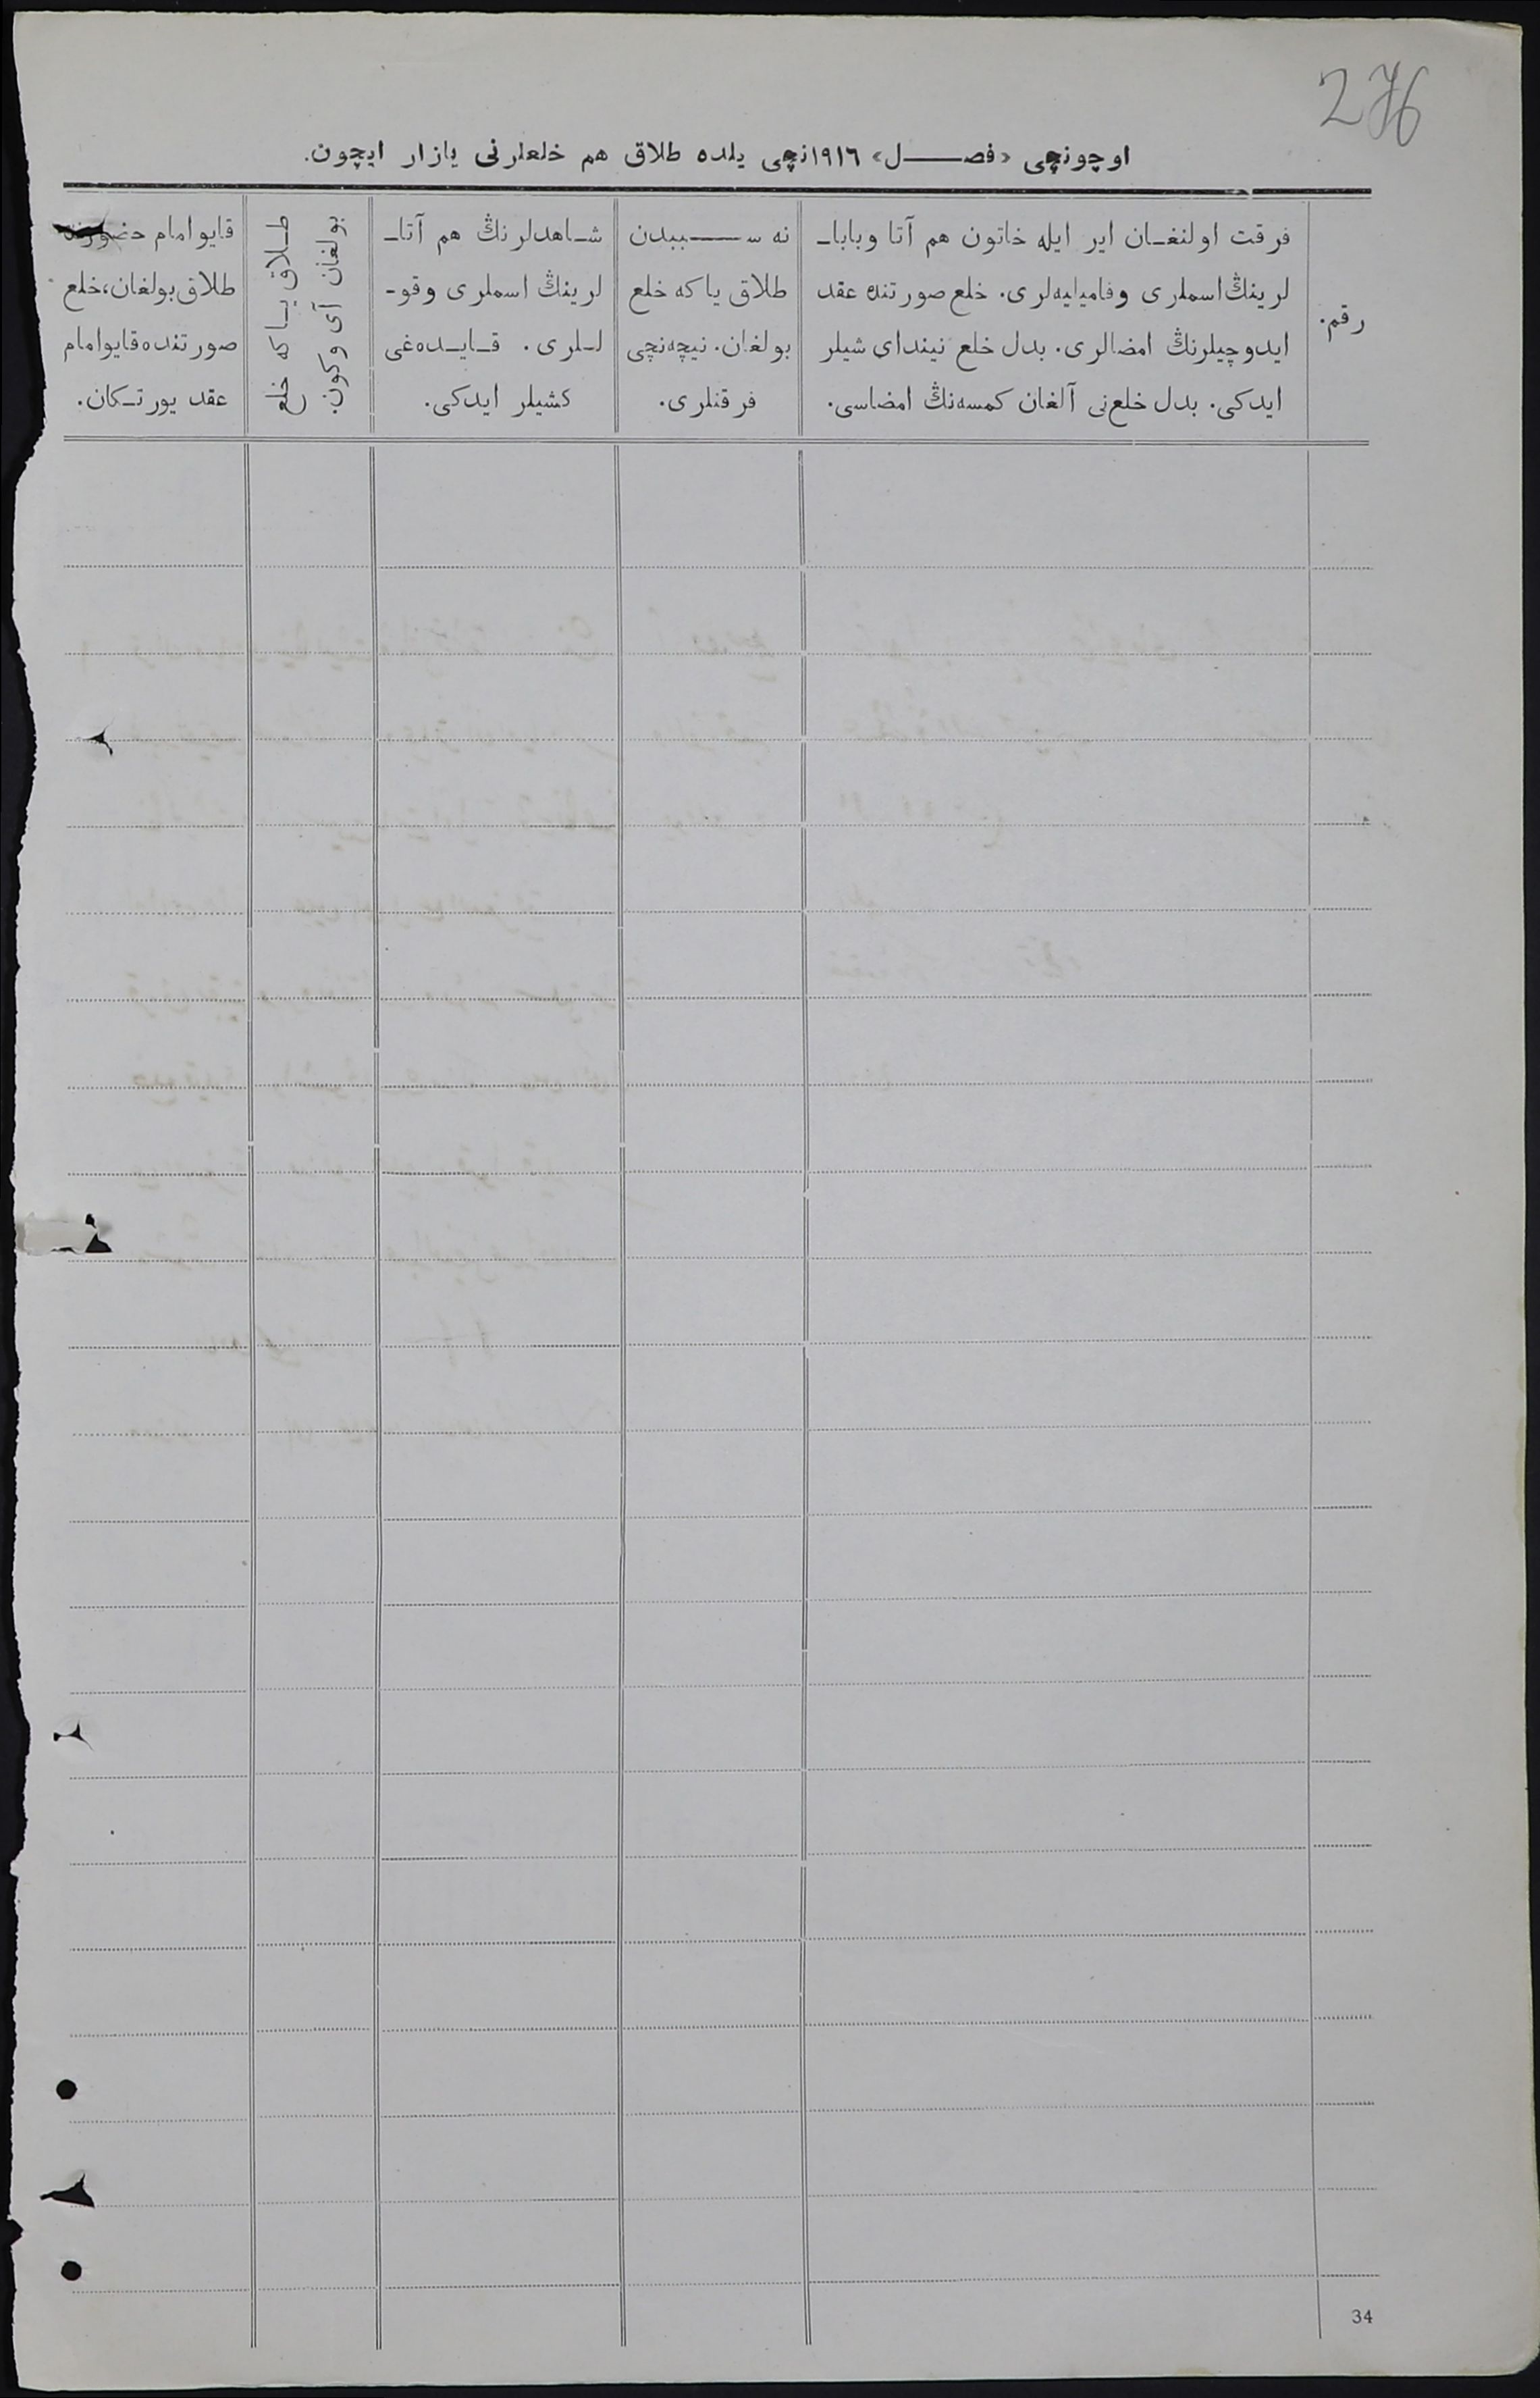 276
اوچونچی «فصل» ١٩١٦نچی یلده طلاق هم خلعلرنی یازار ایچون.
رقم.
فرقت اولنغان ایر ایله خاتون هم آتا وبابا-
لرینڭ اسملری وفامیلیه‌لری. خلع صورتنده عقد
ایدوچیلرنڭ امضالری. بدل خلع نیندای شیلر
ایدکی. بدل خلع‌نی آلغان کمسه‌نڭ امضاسی.
نه سببدن
طلاق یاکه خلع
بولغان. نیچه‌نچی
فرقتلری.
شاهدلرنڭ هم آتا-
لرینڭ اسملری وقو-
للری. قایده‌غی
کشیلر ایدکی.
طلاق یاکه خلع
بولغان آی وکون.
قایو امام حضورنده
طلاق بولغان، خلع
صورتنده قایو امام
عقد یورتکان.
34